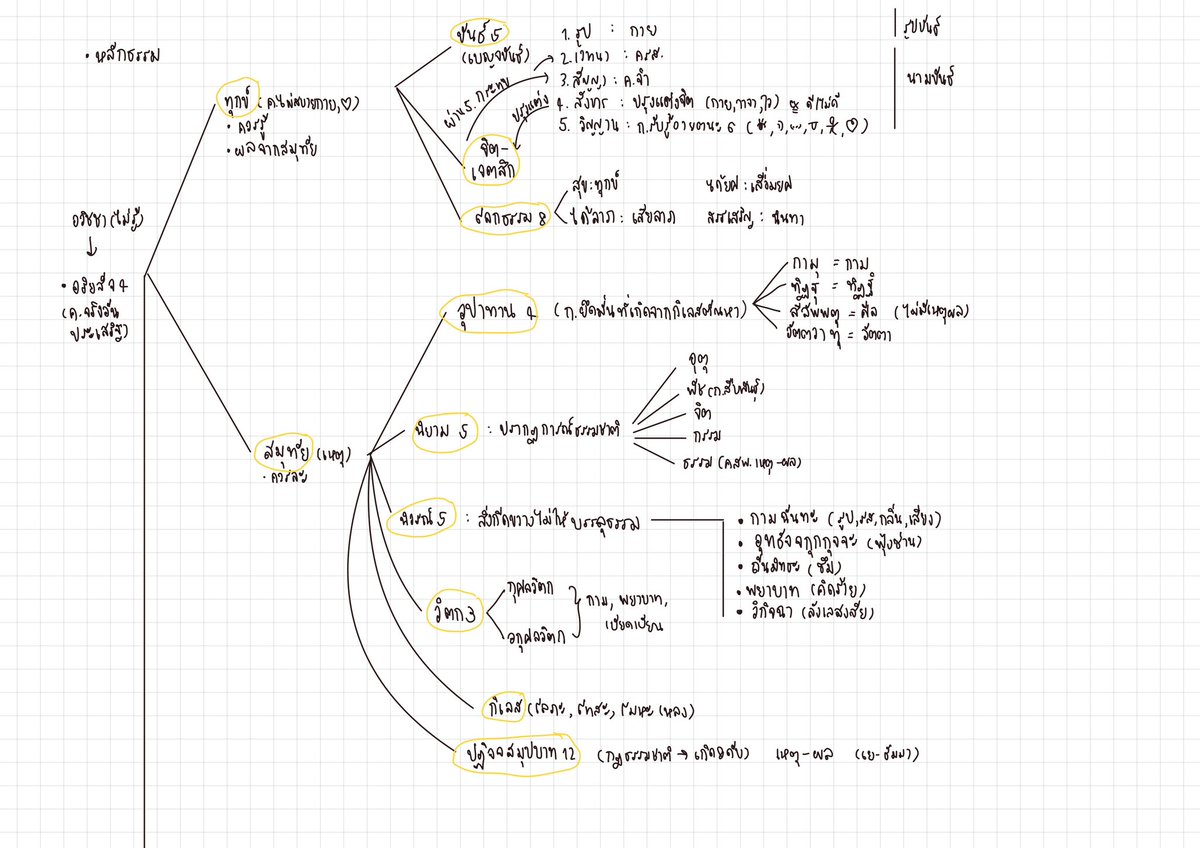 • หลักธรรม
ทุกข์ (ค.ไม่สบายกาย,♡)
• ควรรู้
• ผลจากสมุทัย
อวิชชา (ไม่รู้)
↓
• อริยสัจ 4
(ค.จริงอัน
ประเสริฐ)
ขันธ์ 5
(เบญจขันธ์)
1. รูป : กาย
2. เวทนา : ครส.
3. สัญญา : ค.จำ
4. สังขาร : ปรุงแต่งจิต (กาย,วาจา,ใจ) ดีไม่ดี
5. วิญญาน : ก.รับรู้อายตนะ 6
รูปขันธ์
นามขันธ์
ผ่าน 5. กระทบ
ปรุงแต่ง
จิต-
เจตสิก
โลกธรรม 8
สุข:ทุกข์ ได้ยศ:เสื่อมยศ
ได้ลาภ : เสียลาภ สรรเสริญ : นินทา
สมุทัย (เหตุ)
• ควรละ
อุปาทาน 4 (ก.ยึดมั่นที่เกิดจากกิเลสตัณหา)
กามุ = กาม
ทิฏฐุ = ทิฏฐิ
สีลัพพตุ = ศีล (ไม่มีเหตุผล)
อัตตวาทุ = อัตตา
นิยาม 5 : ปรากฏการณ์ธรรมชาติ
อุตุ
พีช (ก.สืบพันธุ์)
จิต
กรรม
ธรรม (คสพ.เหตุ-ผล)
นิวรณ์ 5 : สิ่งกีดขวางไม่ให้บรรลุธรรม
• กามฉันทะ (รูป,รส,กลิ่น,เสียง)
• อุทธัจจกุกกุจจะ (ฟุ้งซ่าน)
• ถีนมิทธะ (ซึม)
• พยาบาท (คิดร้าย)
• วิกิจฉา (ลังเลสงสัย)
วิตก 3
กุศลวิตก
อกุศลวิตก
กาม, พยาบาท,
เบียดเบียน
กิเลส (โลภะ, โทสะ, โมหะ (หลง)
ปฏิจจสมุปบาท 12 (กฎธรรมชาติ → เกิดดับ) เหตุ-ผล (เย-ธัมมา)